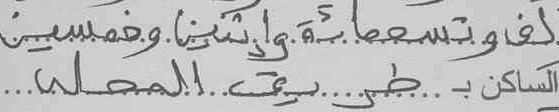 لف و تسعمائة و إثنين و خمسين
الساكن بـ .. طريق .. المحلى ...